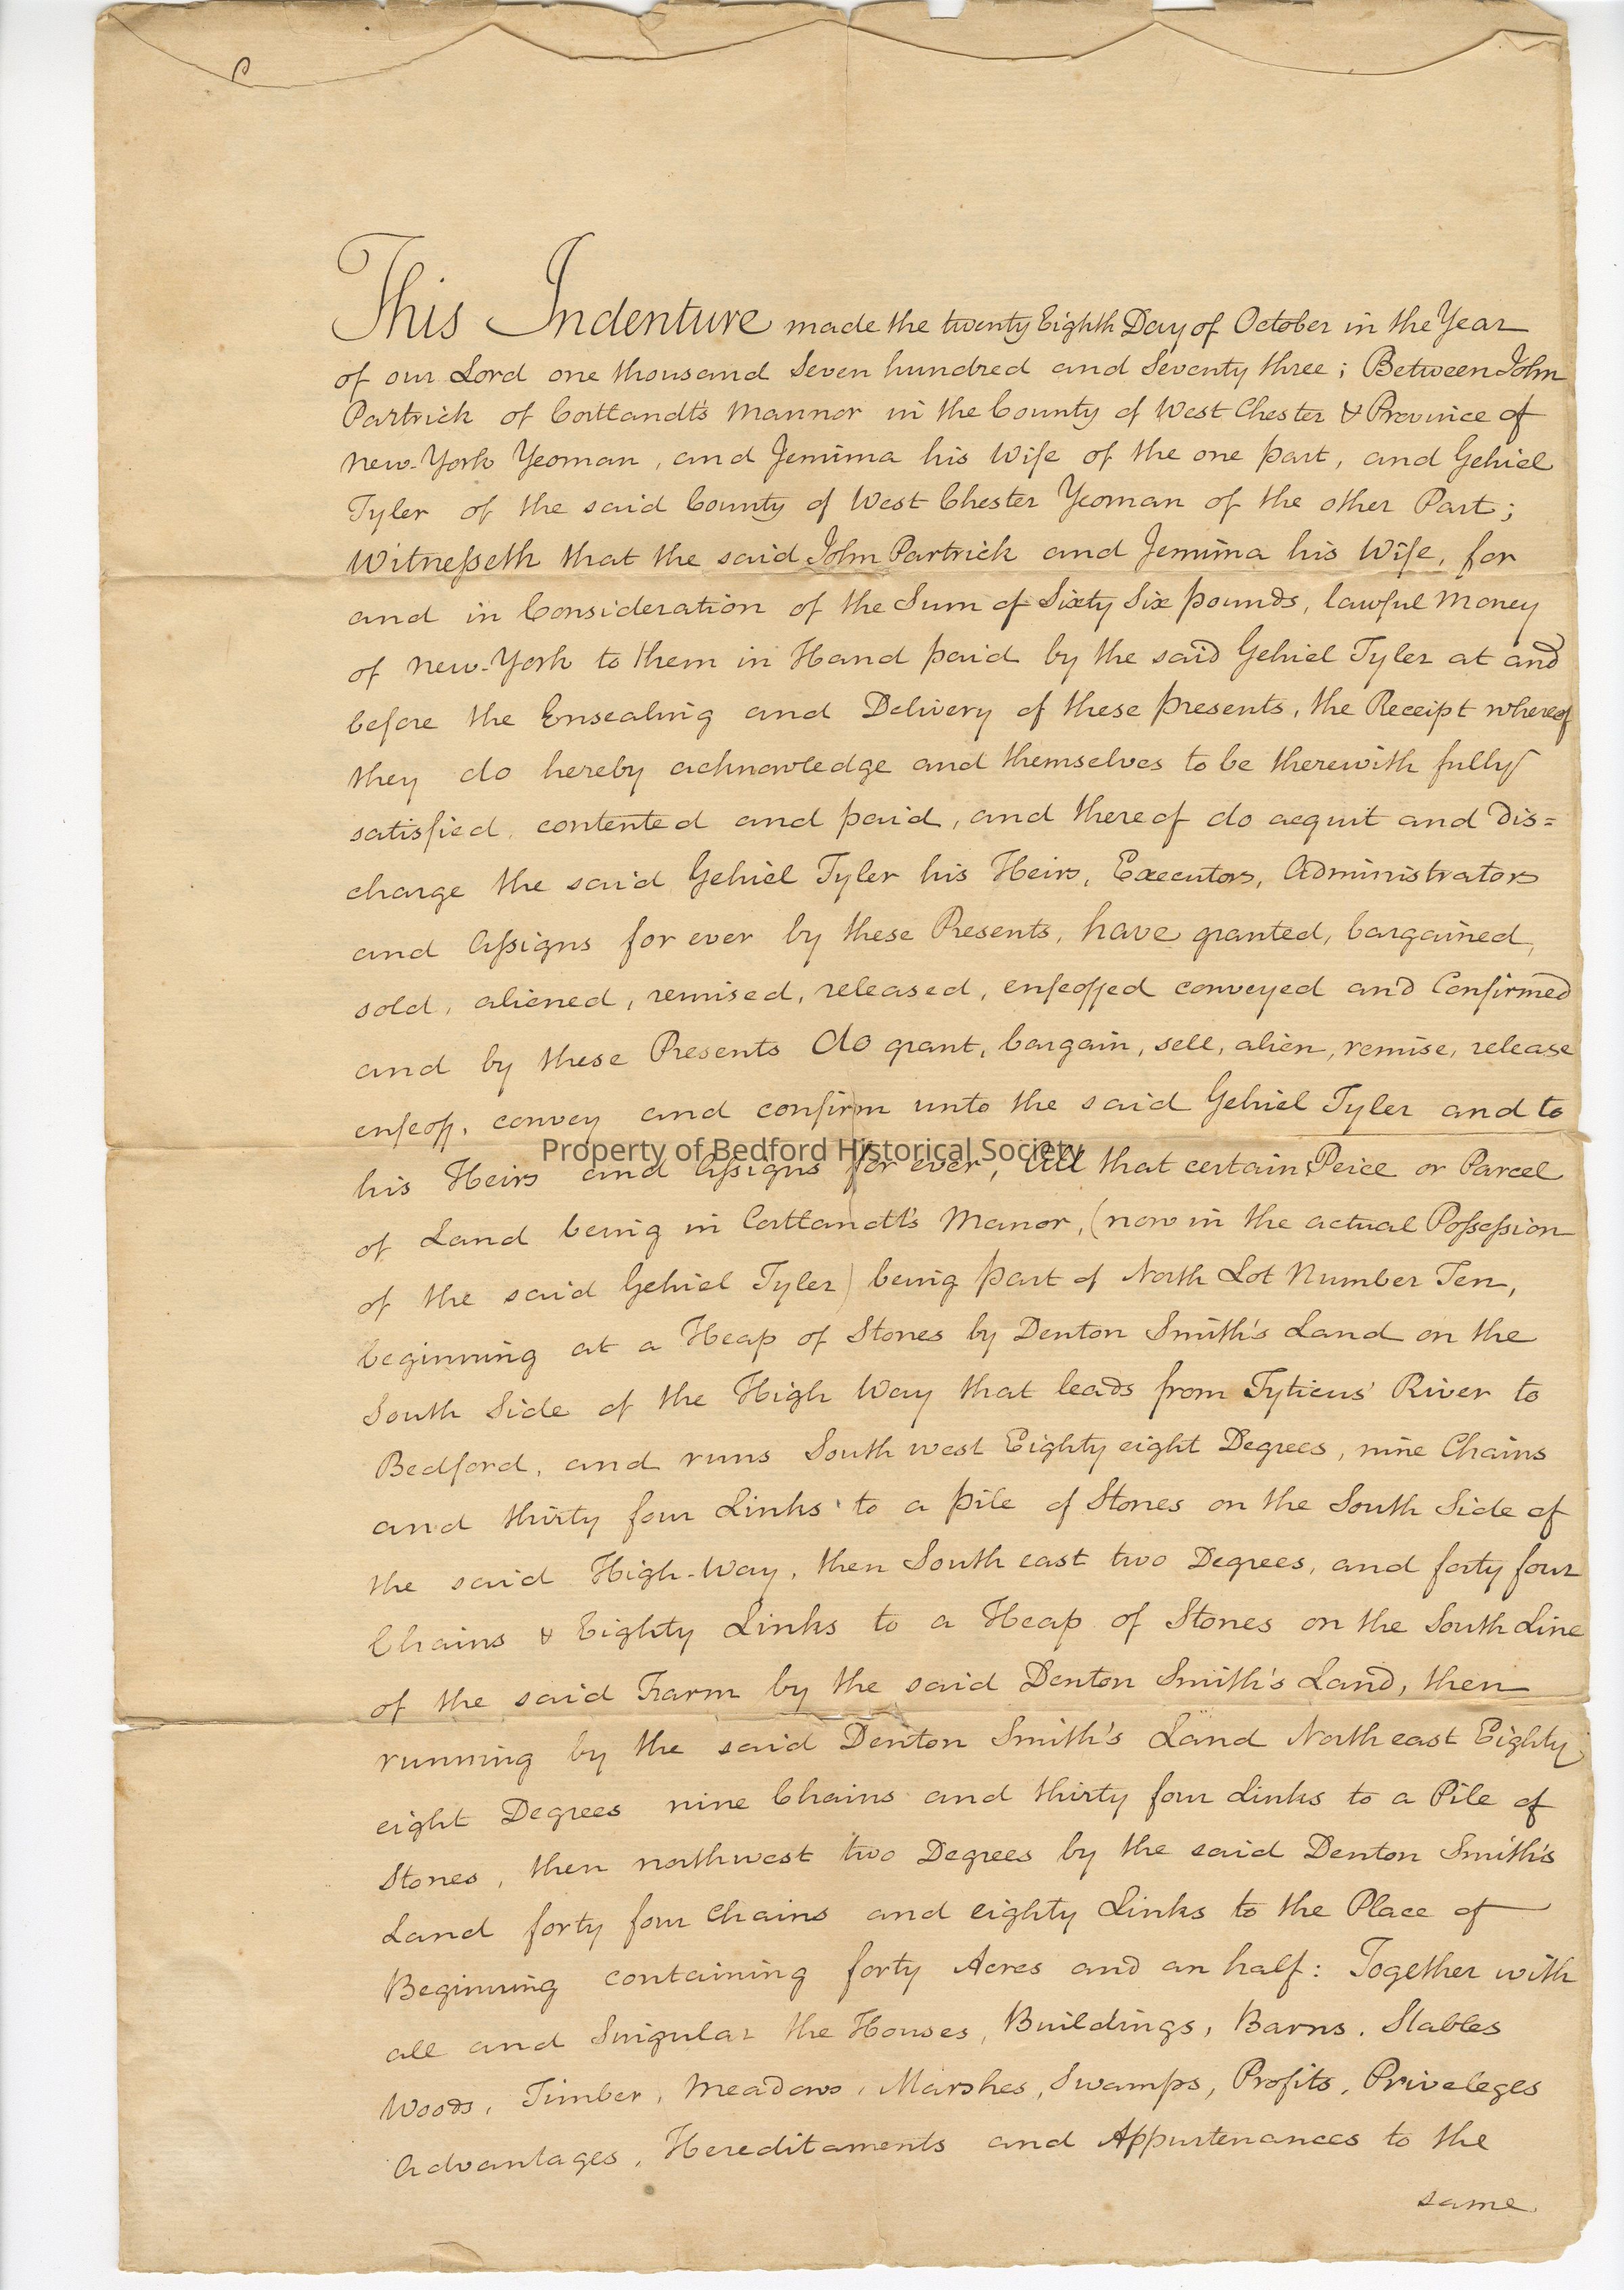 This Indenture made the twenty Eighth Day of October in the Year
of our Lord one thousand Seven hundred and Seventy three; Between John
Partrick of Cortlandt's Mannor in the County of West Chester & Province of
New-York Yeoman, and Jemima his Wife of the one part, and Gehiel
Tyler of the said County of West Chester Yeoman of the other Part;
Witnesseth that the said John Partrick and Jemima his Wife, for
and in Consideration of the Sum of Sixty Six pounds, lawful Money
of New-York to them in Hand paid by the said Gehiel Tyler at and
before the Ensealing and Delivery of these presents, the Receipt whereof
they do hereby acknowledge and themselves to be therewith fully
satisfied, contented and paid, and thereof do acquit and Dis=
charge the said Gehiel Tyler his Heirs, Executors, Administrators
and Assigns for ever by these Presents, have granted, bargained,
sold, aliened, remised, released, enfeoffed conveyed and Confirmed
and by these Presents do grant, bargain, sell, alien, remise, release
enfeoff, convey and confirm unto the said Gehiel Tyler and to
Property of Bedford Historical Society
his Heirs and Assigns for ever, All that certain Peice or Parcel
of Land being in Cortlandt's Manor, (now in the actual Possession
of the said Gehiel Tyler) being part of North Lot Number Ten,
beginning at a Heap of Stones by Denton Smith's Land on the
South Side of the High Way that leads from Tyticus' River to
Bedford, and runs South west Eighty eight Degrees, nine Chains
and thirty four Links to a pile of Stones on the South Side of
the said High-Way, then South east two Degrees, and forty four
Chains & Eighty Links to a Heap of Stones on the South Line
of the said Farm by the said Denton Smith's Land, then
running by the said Denton Smith's Land North east Eighty
eight Degrees nine Chains and thirty four Links to a Pile of
Stones, then northwest two Degrees by the said Denton Smith's
Land forty four Chains and eighty Links to the Place of
Beginning containing forty Acres and an half: Together with
all and Singular the Houses, Buildings, Barns, Stables
Woods, Timber, Meadows, Marshes, Swamps, Profits, Priveleges
Advantages, Hereditaments and Appurtenances to the
same